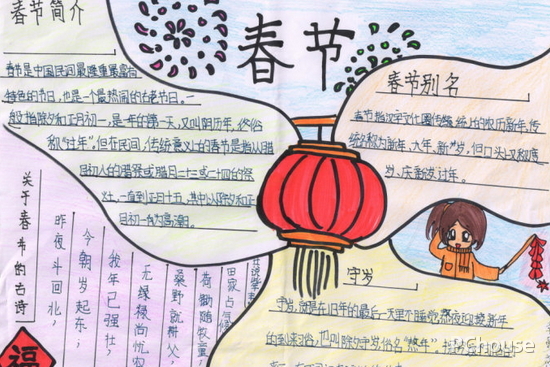 春节
春节简介
春节是中国民间最隆重最富有
特色的节日,也是一个最热闹的古老节日。一
般指除夕和正月初一,是一年的第一天,又叫阴历年,俗
和"过年"。但在民间,传统意义上的春节是指从腊
月初八的腊祭或腊月二十三或二十四的祭
灶,一直到正月十五,其中以除夕和正
月初一为高潮。
春节别名
春节指汉字文化圈传统上的农历新年,传
统名称为新年、大年、新岁,但口头上又称度
岁、庆新岁、过年。
守岁
守岁,就是在旧年的最后一天夜里不睡觉,熬夜迎接新年
的到来的习俗,也叫除夕守岁,俗名"熬年"。
关于春节的古诗
昨夜斗回北,
今朝岁起东;
我年已强壮,
无禄尚忧农
桑野就耕父,
荷锄随牧童,
田家占气候
福
PChouse